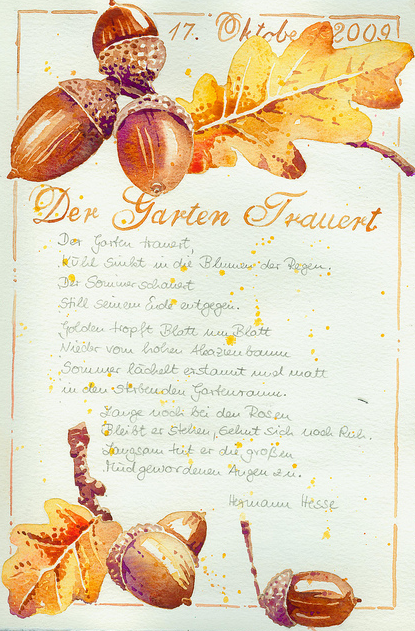 17. Oktober 2009
Der Garten Trauert
Der Garten trauert,
Kühl sinkt in die Blumen der Regen.
Der Sommer schauert
Still seinem Ende entgegen.
Golden tropft Blatt um Blatt
Nieder vom hohen Akazienbaum
Sommer lächelt erstaunt und matt
in den sterbenden Gartenraum.
Lange noch bei den Rosen
Bleibt er stehen, sehnt sich nach Ruh.
Langsam tut er die großen
Müdgewordenen Augen zu.
Hermann Hesse